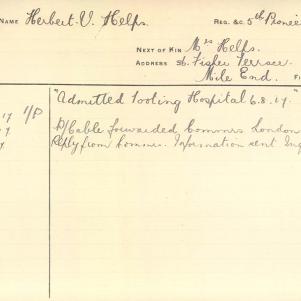 NAME Herbert. V. Helps. REG. &C. 5th Pionee
NEXT OF KIN Mrs Helps.
ADDRESS 36. Fisher Terrace.
Mile End. F
17 1/P "Admitted Tooting Hospital 6.8.17."
D/Cable forwarded Commrs London
Reply from Commr. Information sent Inq